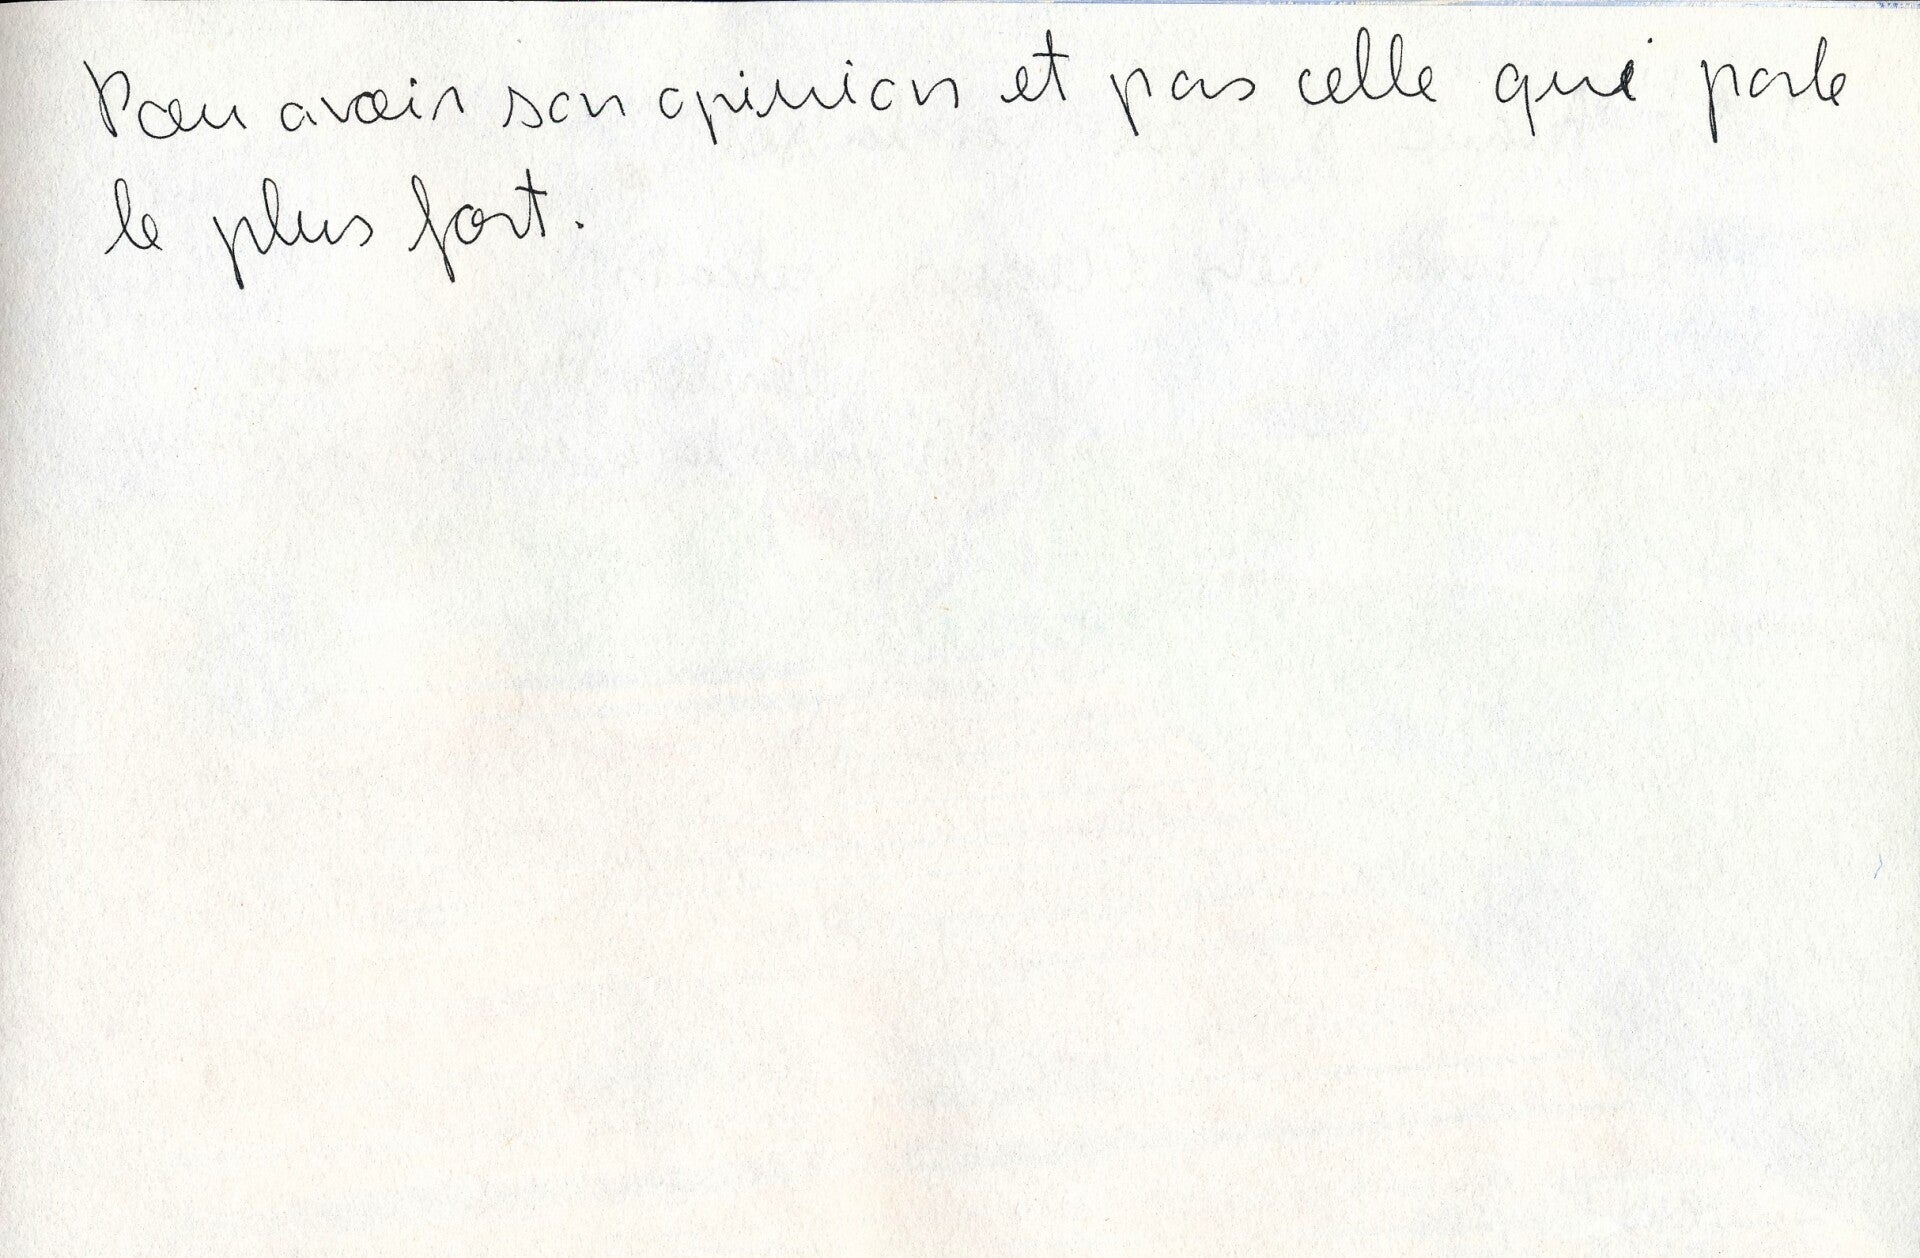 Pour avoir son opinion et pas celle qui parle
le plus fort.